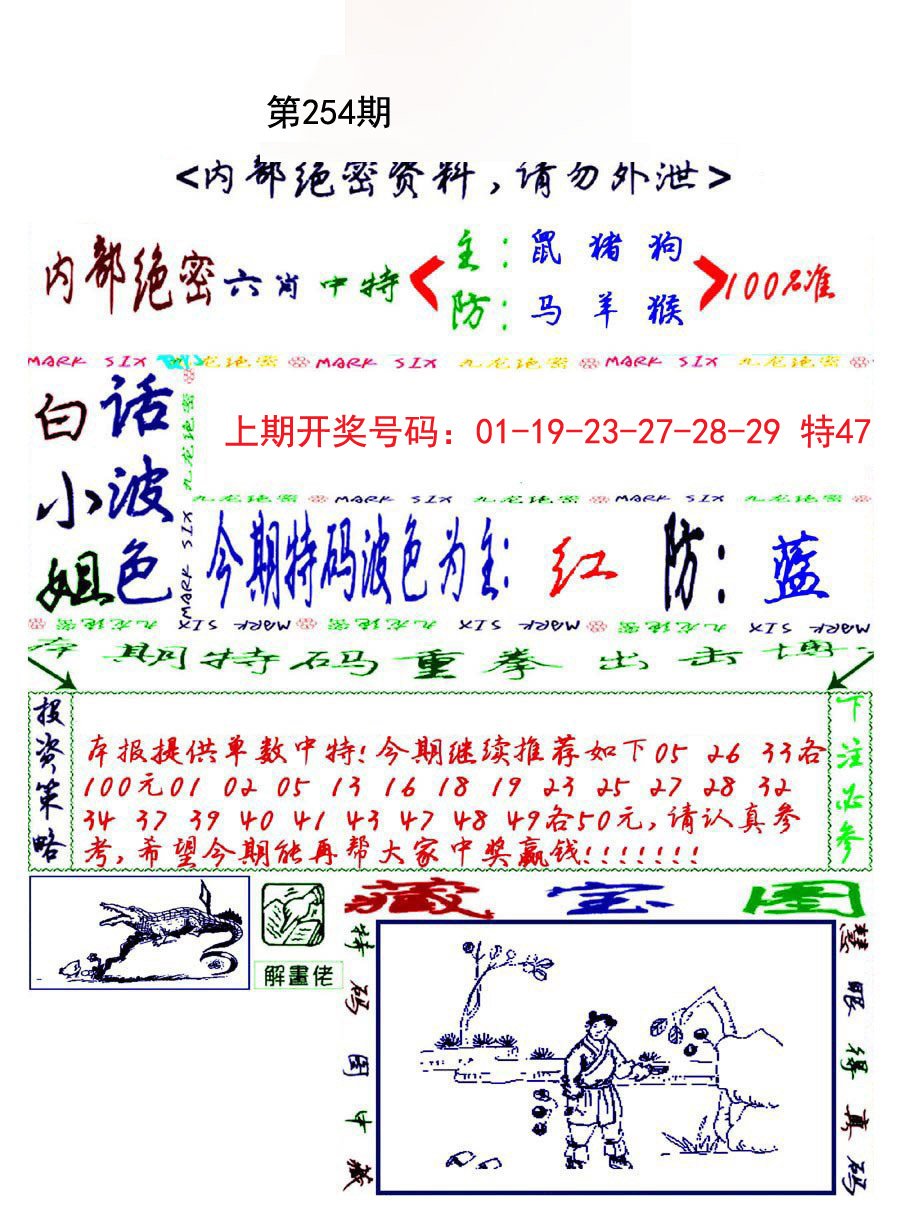 第254期
<内部绝密资料，请勿外泄>
内部绝密六肖中特
主：鼠 猪 狗
防：马 羊 猴
100%准
MARK SIX 九龙绝密 MARK SIX 九龙绝密 MARK SIX 九龙绝密
白小姐
话波色
九龙绝密 MARK SIX
上期开奖号码：01-19-23-27-28-29 特47
九龙绝密 MARK SIX 九龙绝密 MARK SIX 九龙绝密
今期特码波色为主：红 防：蓝
九龙绝密 MARK SIX 九龙绝密 MARK SIX 九龙绝密 MARK SIX
本期特码重拳出击博
投资策略
本报提供单数中特！今期继续推荐如下05 26 33各
100元01 02 05 13 16 18 19 23 25 27 28 32
34 37 39 40 41 43 47 48 49各50元，请认真参
考，希望今期能再帮大家中奖赢钱！！！！！！！
下注必参
解畫佬
藏宝图
特码图中藏
慧眼得真码